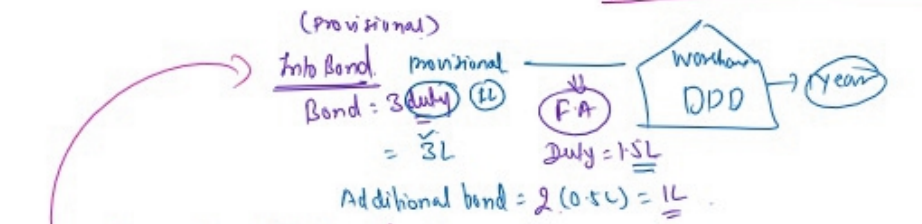 (Provisional)
Into Bond. provisional
Bond = 3 duty 1L
= 3L
F.A
Duty = 1.5L
Warehouse
DDD
1 year
Additional bond = 2 (0.5L) = 1L